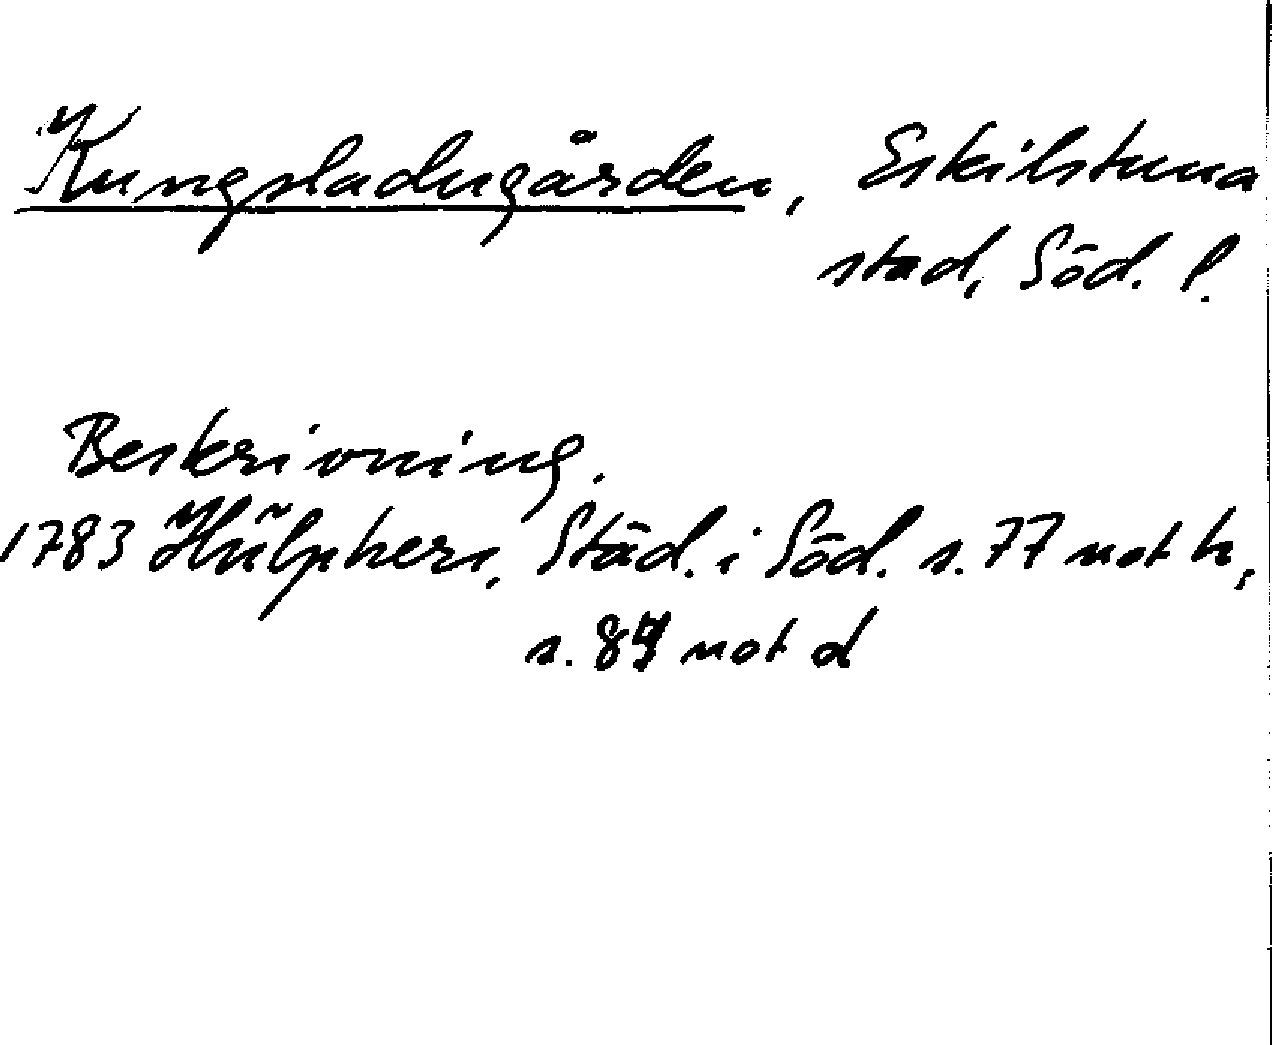 Kungsladugården, Eskilstuna
stad, Söd. l.
Beskrivning.
1783 Hülphers, Städ. i Söd. s. 77 not h,
s. not d